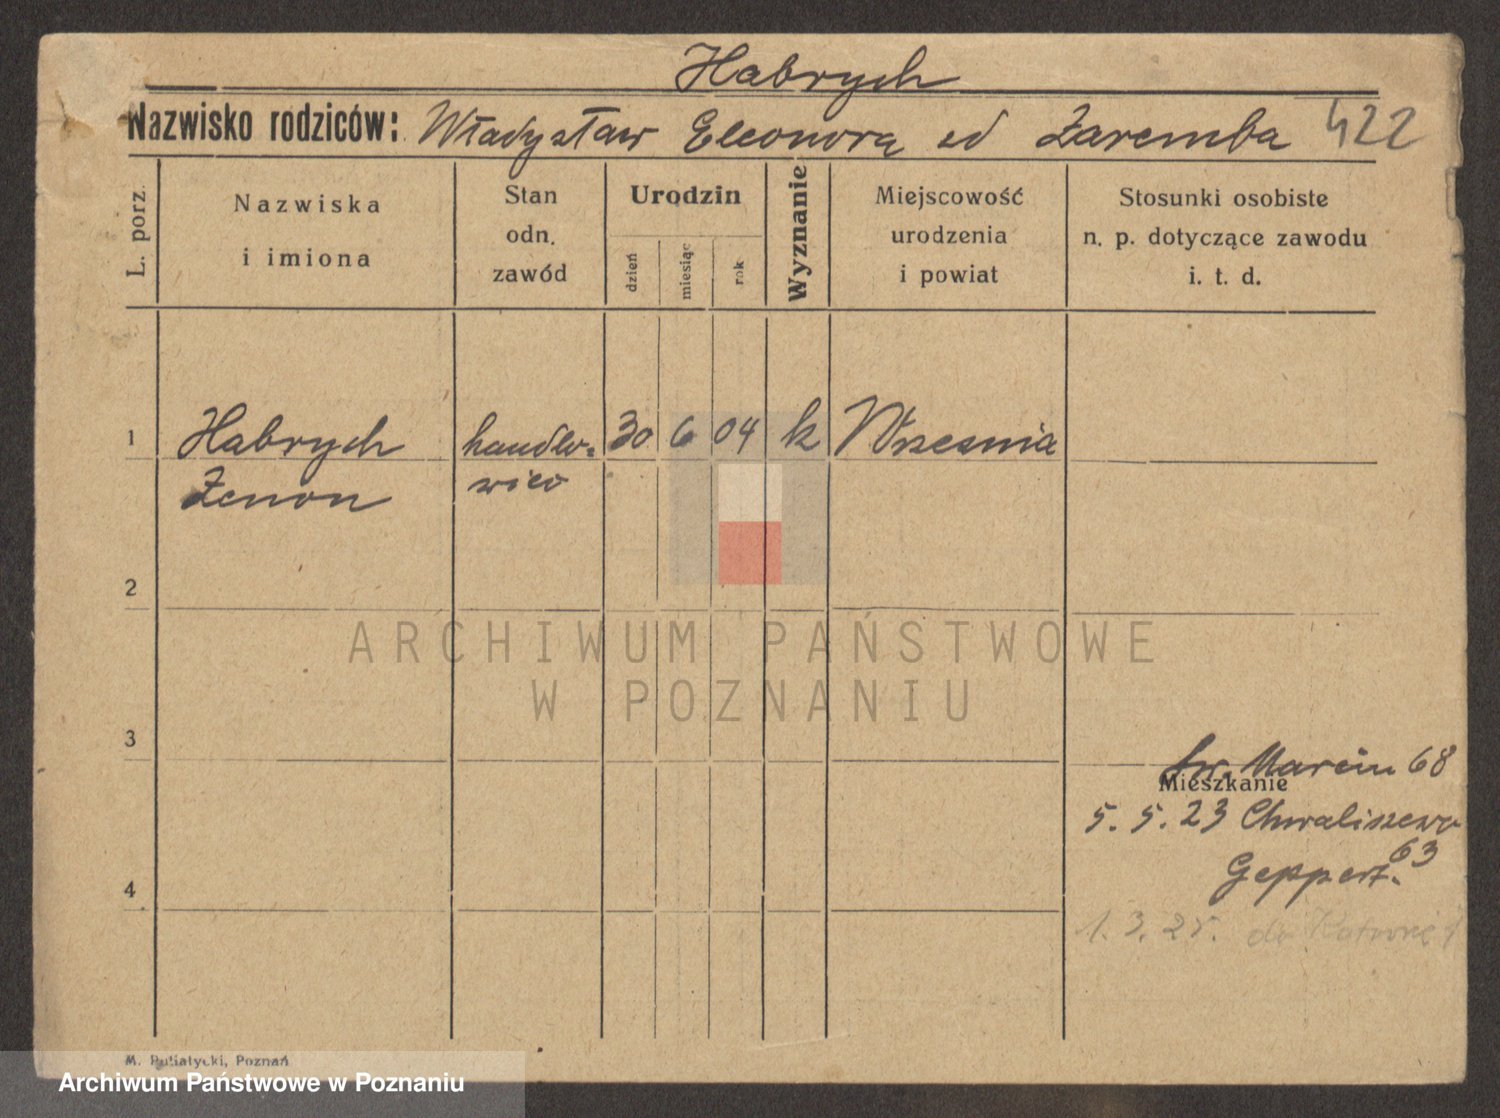 Habrych
Nazwisko rodziców: Władysław Eleonora ed Zaremba 422
L. porz.
Nazwiska
i imiona
Stan
odn.
zawód
Urodzin
dzień
miesiąc
rok
Wyznanie
Miejscowość
urodzenia
i powiat
Stosunki osobiste
n. p. dotyczące zawodu
i. t. d.
1 Habrych handlo= 30 6 04 k Wrzesnia
Zenon wiec
2
ARCHIWUM PAŃSTWOWE
W POZNANIU
3
św. Marcin 68
Mieszkanie
5. 5. 23 Chwaliszewo
63
Geppert.
4
1. 3. 25. do
M. Putiatycki, Poznań
Archiwum Państwowe w Poznaniu